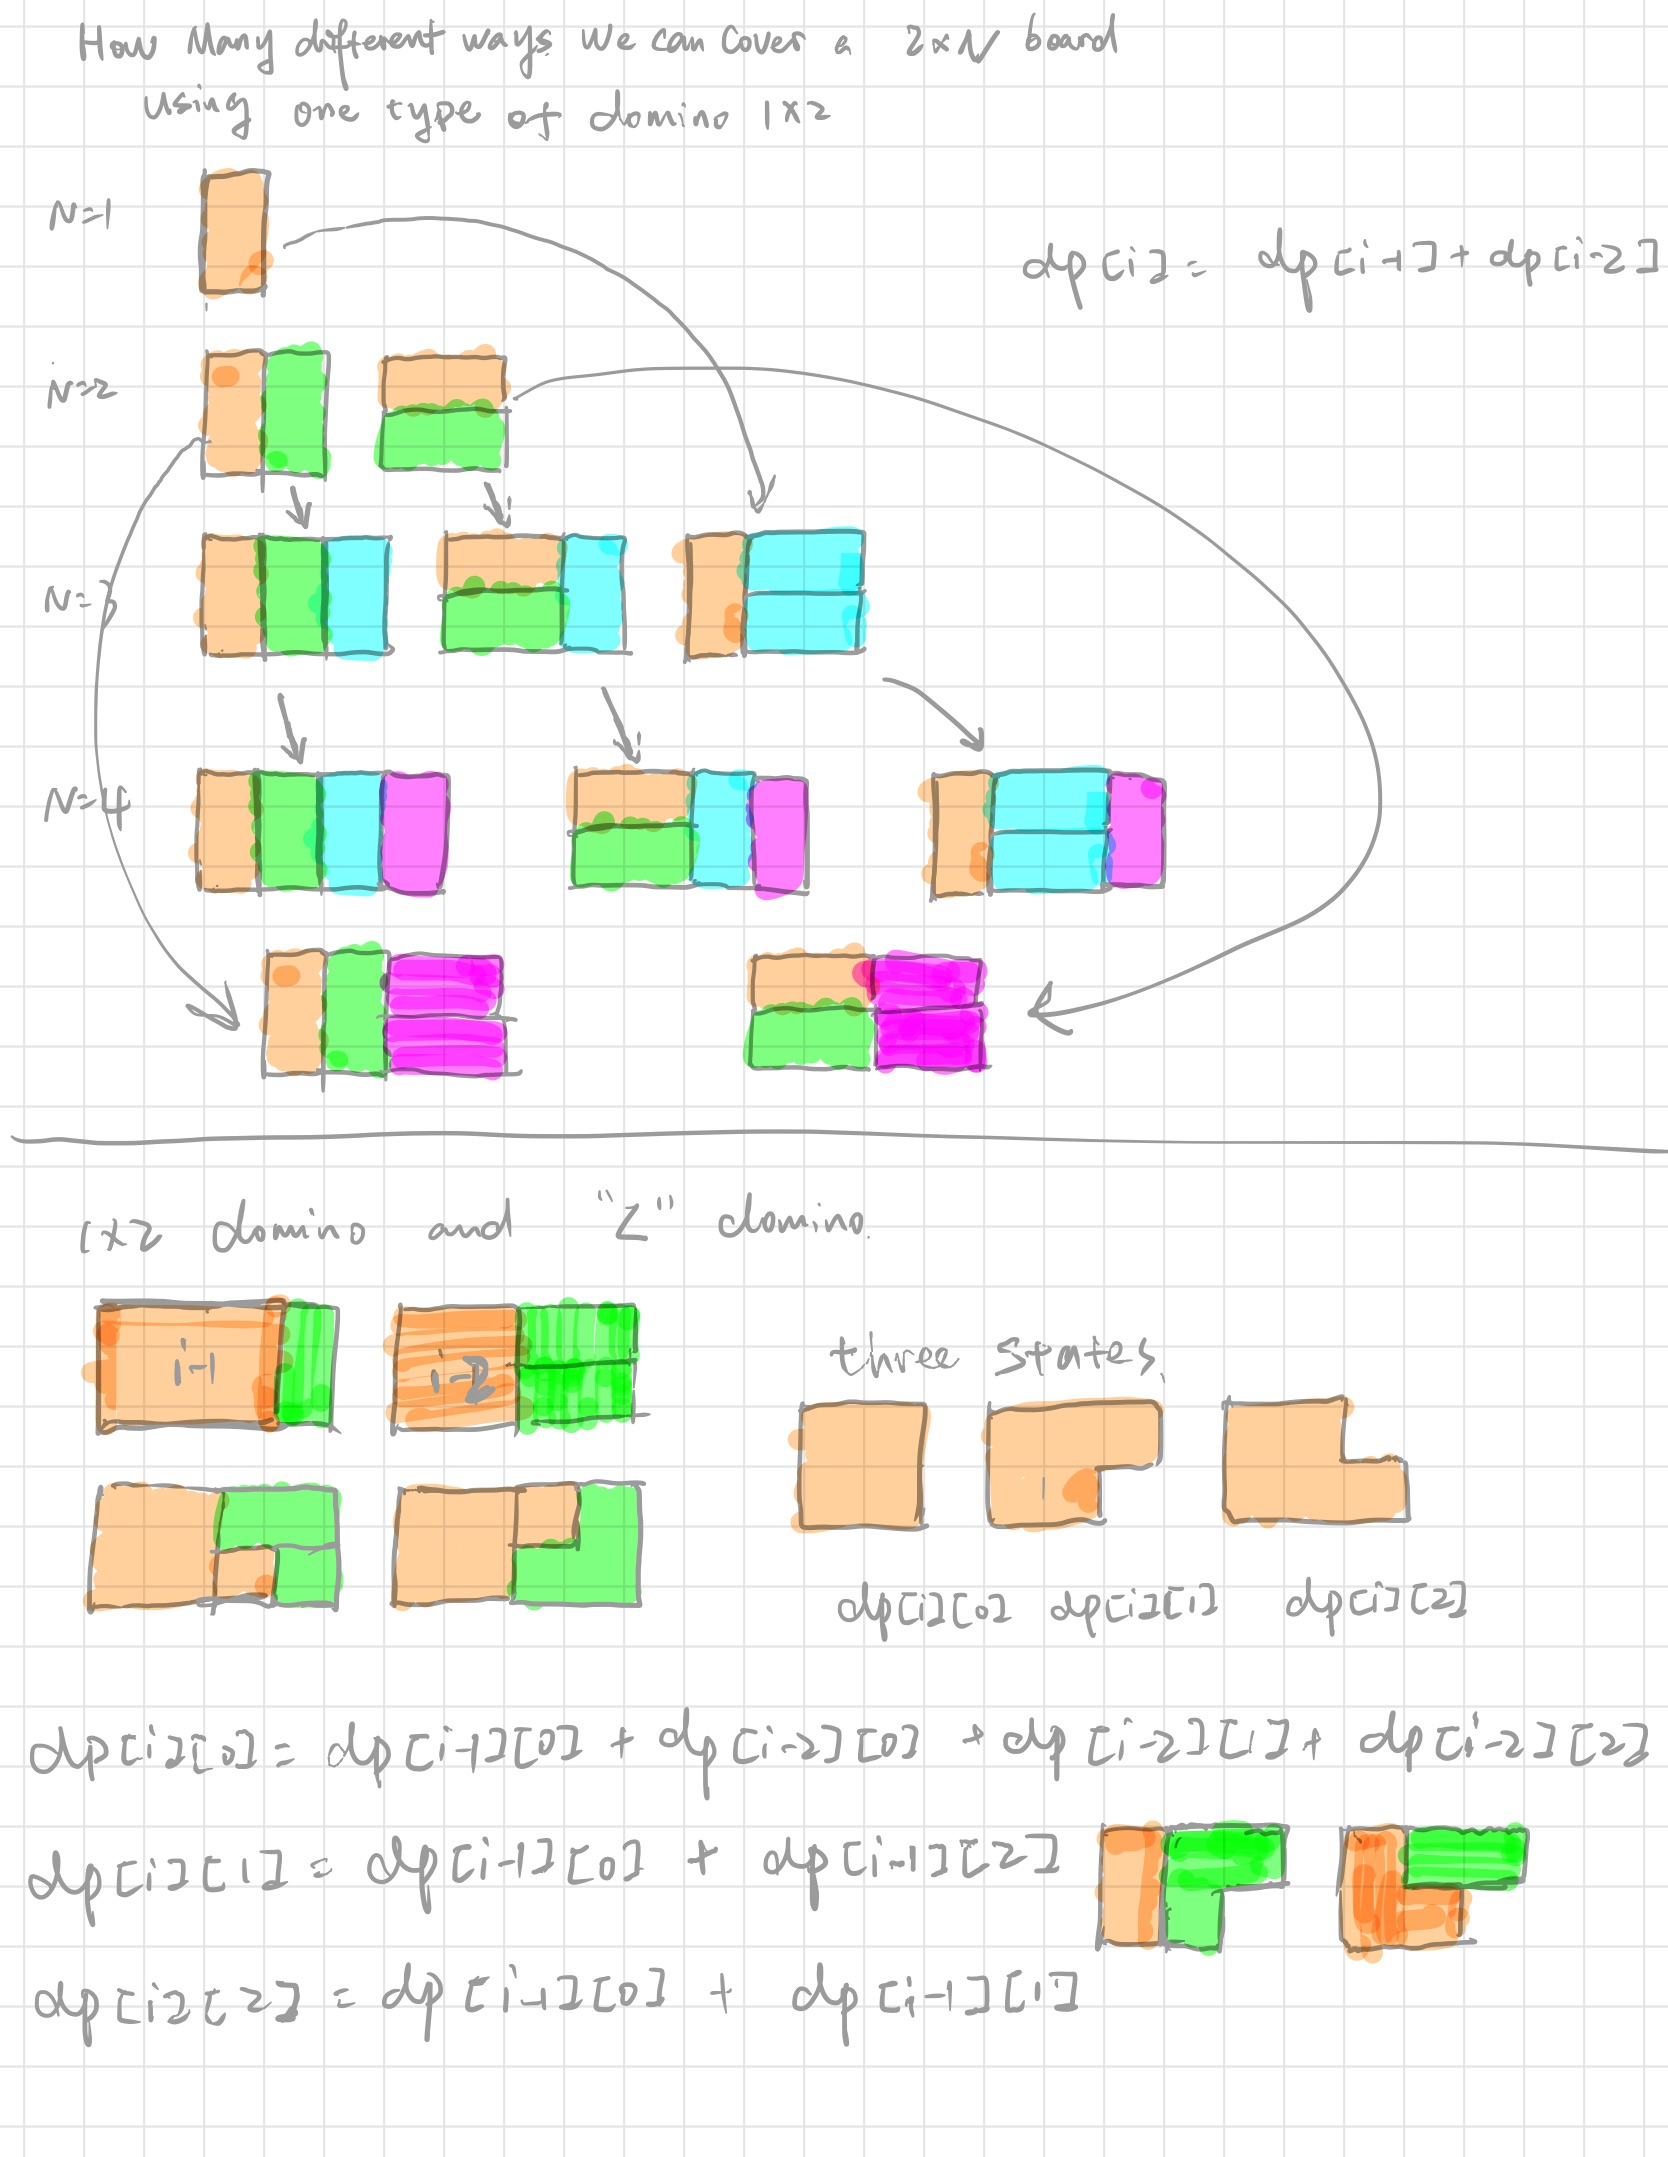 How Many different ways We can Cover a 2×N board
using one type of domino 1×2
N=1
dp[i] = dp[i-1] + dp[i-2]
N=2
N=3
N=4
1×2 domino and "L" domino.
i-1 i-2
three states
dp[i][0] dp[i][1] dp[i][2]
dp[i][0] = dp[i-1][0] + dp[i-2][0] + dp[i-2][1] + dp[i-2][2]
dp[i][1] = dp[i-1][0] + dp[i-1][2]
dp[i][2] = dp[i-1][0] + dp[i-1][1]